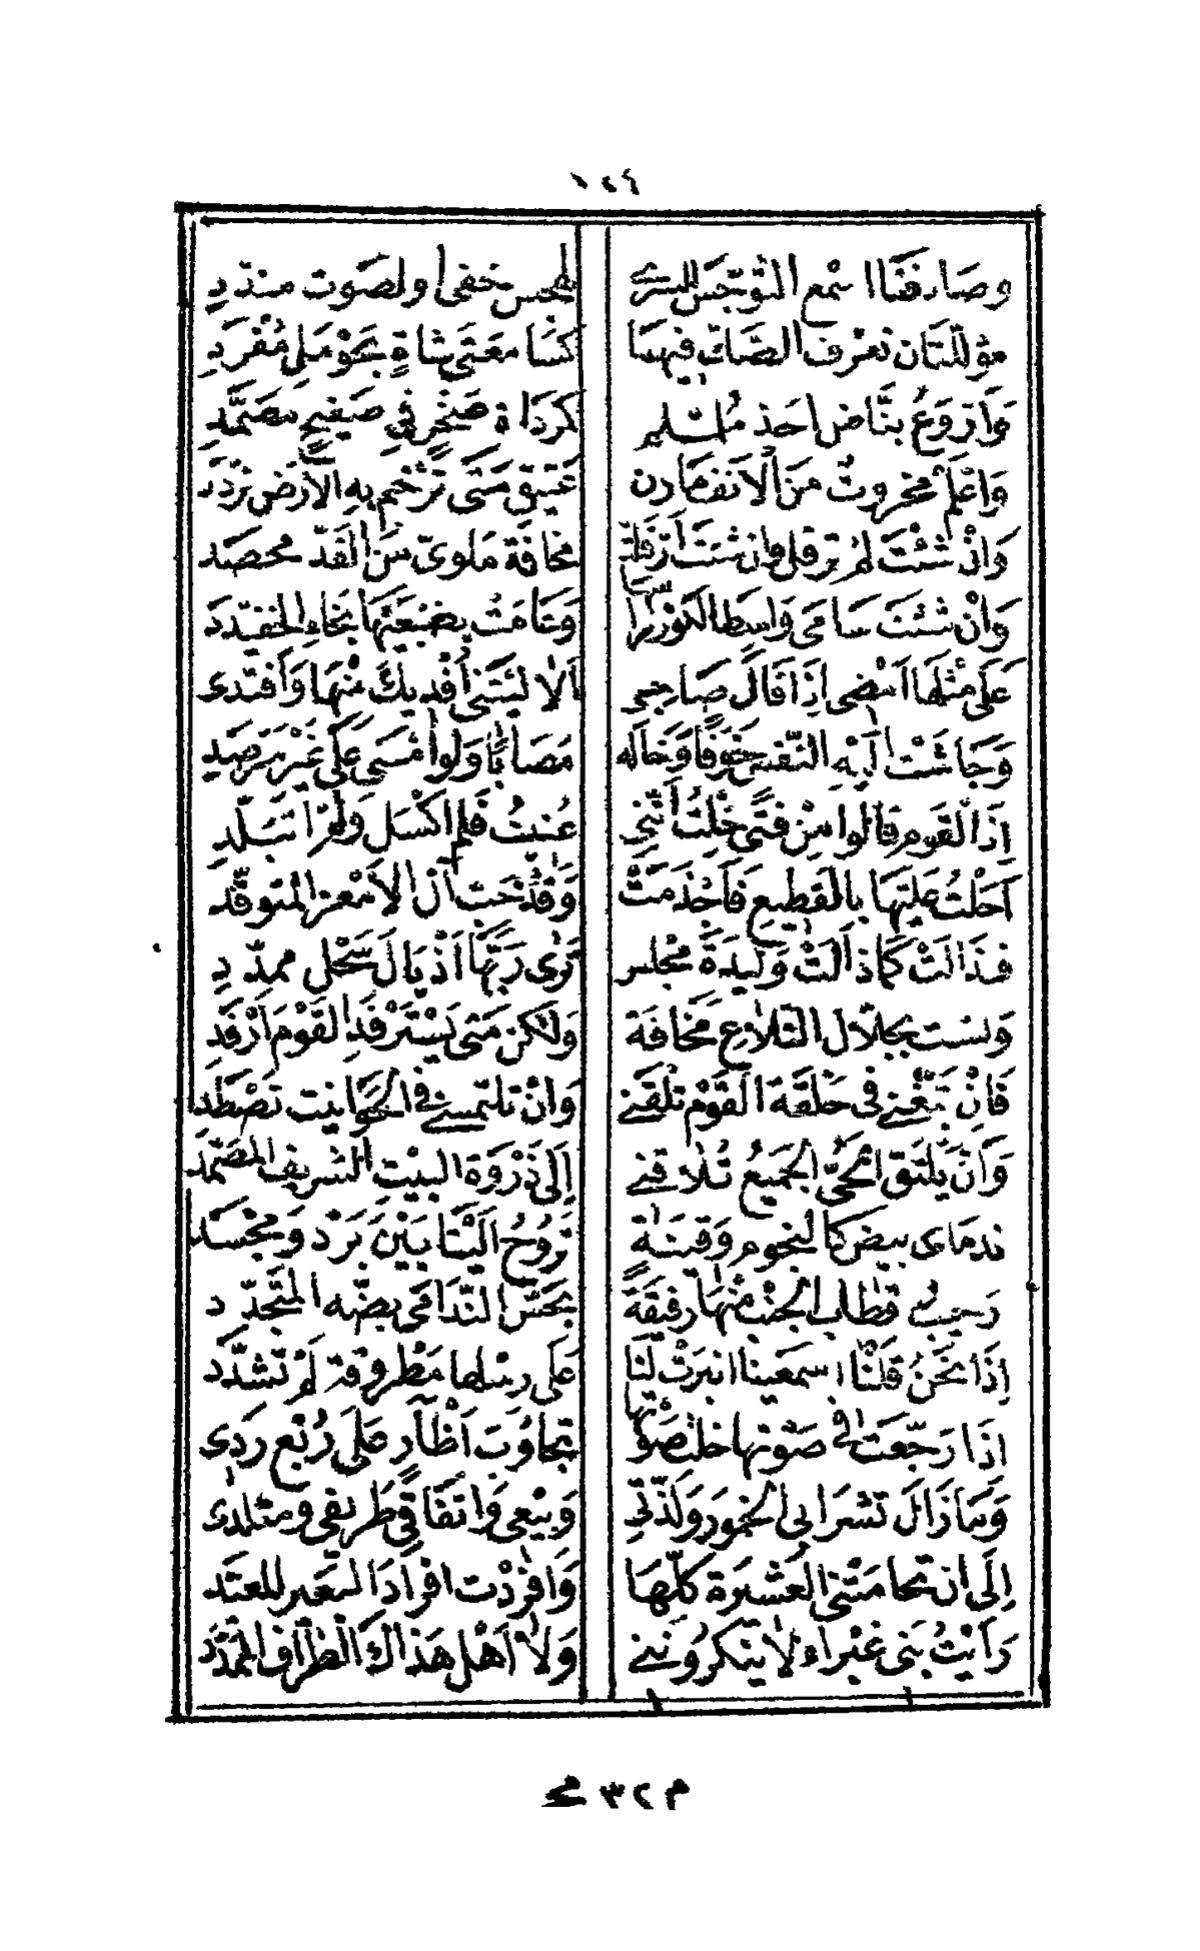 ١٢٤
وصادفتا اسمع التوجس للسرے لهجس خفی او لصوت مندّدِ
مؤللتان تعرف العتاق فیهما كسامعتی شاةٍ بحومل مُفْرَدِ
وَارْوَعُ نبّاض احذ مُلملم كمرداة صخرٍ فی صفیح مصمّد
وَاعْلم مخروتٌ مَنَ الْاَنف مارن عَتیق مَتی تَرْجُم بِهِ الارْض تزدد
وَانْ شئتُ لم ترقل وان شئت ارْقلت مخافَة مَلویّ مِنَ القَدّ محصَد
وَانْ شئتَ سَامی وَاسِط الكورْ راسها وَعَامَتْ بضَبْعَیْهَا نجاءِ الخفیدد
عَلَی مثْلهَا اَمضی اِذَا قَالَ صَاحبی اَلا لیْتَنی اَفْدیكَ مْنهَا وَاَفتدی
وَجَاشَتْ اِلَیْهِ النّفس خَوفًا وَخاله مُصَابًا وَلَوْ اَمْسَی عَلَی غَیْر مَرْصَدِ
اِذَا الْقَوم قالوا مِنْ فَتًی خِلْتُ اَنّنی عُنیتُ فَلم اكْسَل وَلمْ اتَبَلّدِ
اَحَلْتُ عَلیْهَا بِالْقَطیعِ فَاَجْذمَتْ وَقدْ خَبّ آلُ الاَمْعز المتوقّد
فذَالَتْ كَمَا ذالَتْ وَلیْدَة مجْلس تُری رَبّهَا اَذْیالَ سَحْلٍ ممدّدِ
وَلست بحلاّل التلَاعِ مَخافَة وَلٰكن مَتی یَسْتَرْفدِ القَوْمُ اَرْفد
فَانْ تَبْغنی فی حَلقَة القَوْم تَلْقَنی وَانْ تلتمسنی فی الحَوَانیت تصْطَد
وَانْ یَلتَق الحیّ الجمیعُ تُلاقنی اِلَی ذرْوَة البیْتِ الشریف المصمّد
ندمای بیض كالنجوم وَقینَة تَرُوحُ اِلَیْنَا بَیْنَ بَرْد وَمجْسَد
رَحیب قطاب الجیْب مْنهَا رفیقَة بجَسّ النّدَامی بضّه المتَجَرّد
اِذَا نَحْنُ قلْنَا اسمعینا انبرَتْ لَنَا عَلَی رِسْلها مَطْروقة لمْ تشدّد
اِذَا رَجّعَتْ فی صَوْتها خلتَ صَوْتها تجاوُبَ اَظْآرٍ عَلَی رُبَعٍ رَدی
وَمَا زَالَ تشرَابی الخمُور وَلَذّتی وَبیْعی وَانفَاقی طَریفی ومتلدی
اِلَی ان تحامَتْنی العَشْیرَة كلّهَا وَافردْت افرادَ البَعیر المعبّد
رَاَیْتُ بَنی غبْراء لَا ینْكرُونَنی وَلَا اَهْل هَذاكَ الطّرَاف الممدّد
م ٣٢ مج